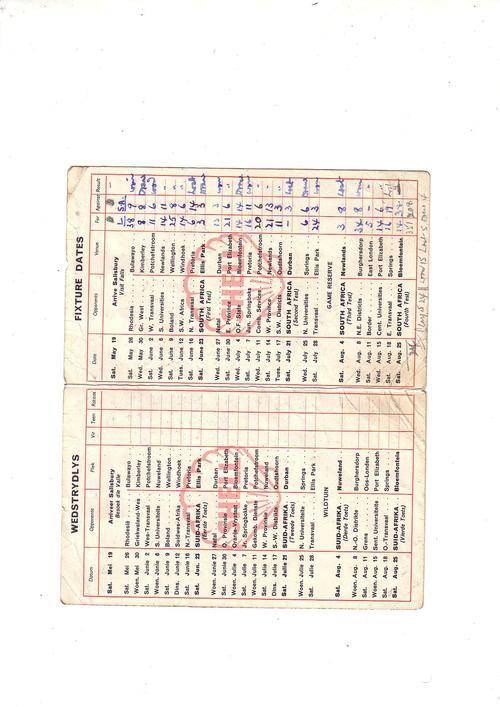 WEDSTRYDLYS
Datum Opponents Plek Vir Teen Kolonne
Sat. Mei 19 Arriveer Salisbury
Besoek die Valle
Sat. Mei 26 Rhodesia Bulawayo
Woen. Mei 30 Griekwaland-Wes Kimberley
Sat. Junie 2 Wes-Transvaal Potchefstroom
Woen. Junie 6 S. Universiteite Nuweland
Sat. Junie 9 Boland Wellington
Dins. Junie 12 Suidwes-Afrika Windhoek
Sat. Junie 16 N.-Transvaal Pretoria
Sat. Jun. 23 SUID-AFRIKA Ellis Park
(Eerste Toets)
Woen. Junie 27 Natal Durban
Sat. Junie 30 O. Provinsie Port Elizabeth
Woen. Julie 4 Oranje-Vrystaat Bloemfontein
Sat. Julie 7 Jr. Springbokke Pretoria
Woen. Julie 11 Gekomb. Dienste Potchefstroom
Sat. Julie 14 W. Provinsie Nuweland
Dins. Julie 17 S.-W. Distrikte Oudtshoorn
Sat. Julie 21 SUID-AFRIKA Durban
(Tweede Toets)
Woen. Julie 25 N. Universiteite Springs
Sat. Julie 28 Transvaal Ellis Park
WILDTUIN
Sat. Aug. 4 SUID-AFRIKA Nuweland
(Derde Toets)
Woen. Aug. 8 N.-O. Distrikte Burghersdorp
Sat. Aug. 11 Grens Oos-Londen
Woen. Aug. 15 Sent. Universiteite Port Elizabeth
Sat. Aug. 18 O.-Transvaal Springs
Sat. Aug. 25 SUID-AFRIKA Bloemfontein
(Vierde Toets)
FIXTURE DATES
Date Opponents Venue For Against Result
L S.A.
Sat. May 19 Arrive Salisbury
Visit Falls
Sat. May 26 Rhodesia Bulawayo 38 9 won
Wed. May 30 Gr. West Kimberley 8 8 Draw
Sat. June 2 W. Transvaal Potchefstroom 11 6 won
Wed. June 6 S. Universities Newlands 14 11 "
Sat. June 9 Boland Wellington 25 8 "
Tues. June 12 S.W. Africa Windhoek 14 6 "
Sat. June 16 N. Transvaal Pretoria 6 14 Lost
Sat. June 23 SOUTH AFRICA Ellis Park 3 3 Draw
(First Test)
Wed. June 27 Natal Durban 13 3 won
Sat. June 30 E. Province Port Elizabeth 21 6 "
Wed. July 4 O.F. State Bloemfontein 14 14 Draw
Sat. July 7 Jun. Springboks Pretoria 16 11 won
Wed. July 11 Comb. Services Potchefstroom 20 6 "
Sat. July 14 W. Province Newlands 21 13 "
Tues. July 17 S.W. Districts Oudtshoorn 11 3 "
Sat. July 21 SOUTH AFRICA Durban - 3 Lost
(Second Test)
Wed. July 25 N. Universities Springs 6 6 Draw
Sat. July 28 Transvaal Ellis Park 24 3 won
GAME RESERVE
Sat. Aug. 4 SOUTH AFRICA Newlands 3 8 Lost
(Third Test)
Wed. Aug. 8 N.E. Districts Burghersdorp 34 8 won
Sat. Aug. 11 Border East London 5 - "
Wed. Aug. 15 Cent. Universities Port Elizabeth 14 6 "
Sat. Aug. 18 E. Transvaal Springs 16 19 Lost
Sat. Aug. 25 SOUTH AFRICA Bloemfontein 14 34
(Fourth Test)
351 208
Played 24 Won 15 Lost 5 Draw 4